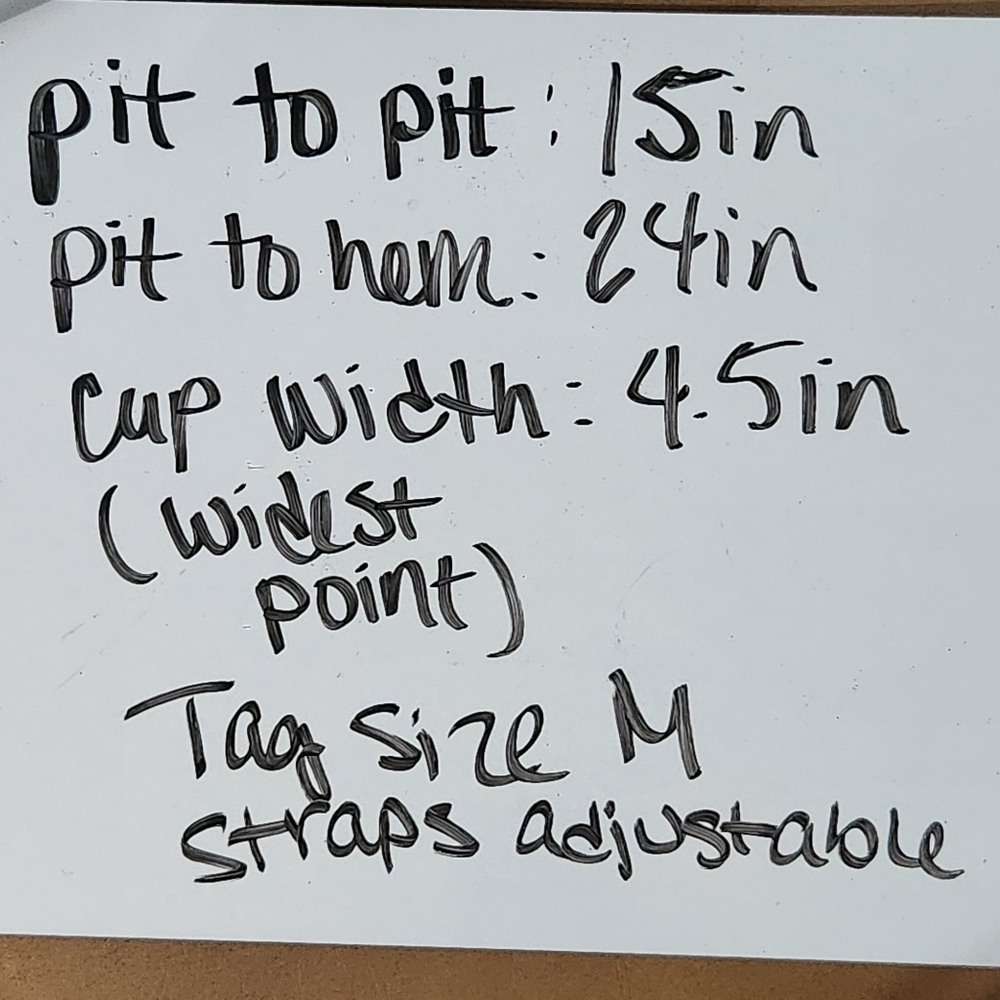 pit to pit: 15in
pit to hem: 24in
cup width: 4.5in
(widest
point)
Tag size M
straps adjustable